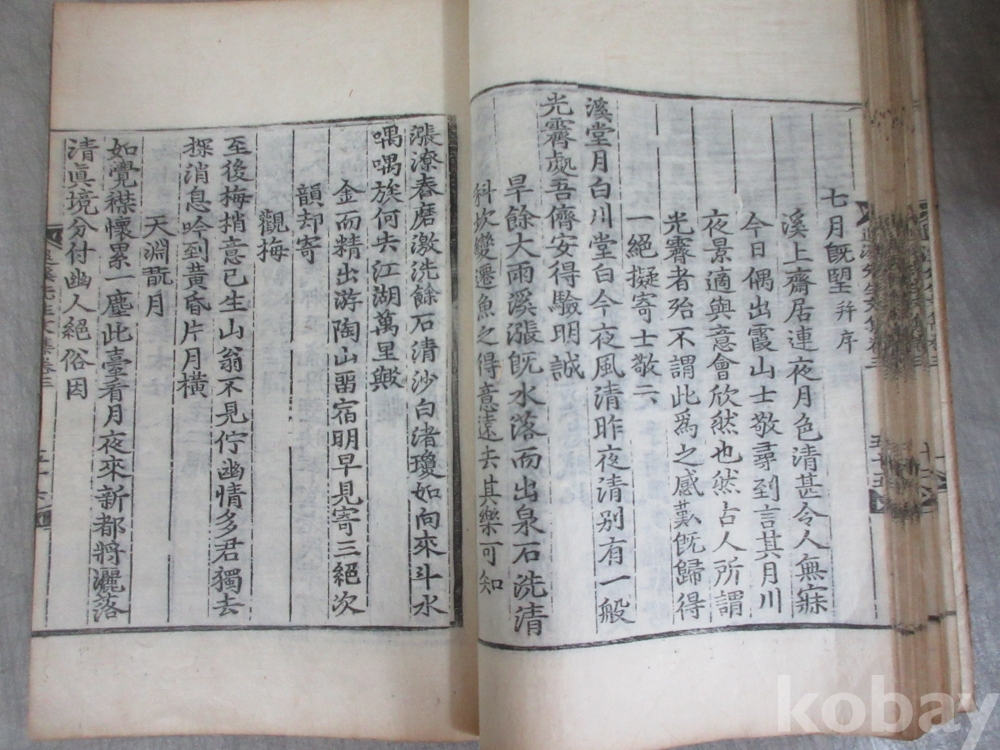 七月旣望 幷序
溪上齋居連夜月色淸甚令人無寐
今日偶出霞山士敬尋到言其月川
夜景適與意會欣然也然古人所謂
光霽者殆不謂此爲之感歎旣歸得
一絕擬寄士敬云
溪堂月白川堂白今夜風淸昨夜淸別有一般
光霽處吾儕安得驗明誠
旱餘大雨溪漲旣水落而出泉石洗淸
科坎變遷魚之得意遠去其樂可知
漲潦舂磨激洗餘石淸沙白渚瓊如向來斗水
喁喁族何去江湖萬里歟
金而精出游陶山畱宿明早見寄三絕次
韻却寄
觀梅
至後梅梢意已生山翁不見佇幽情多君獨去
探消息吟到黃昏片月橫
天淵翫月
如覺襟懷累一塵此臺看月夜來新都將灑落
淸眞境分付幽人絕俗因
kobay